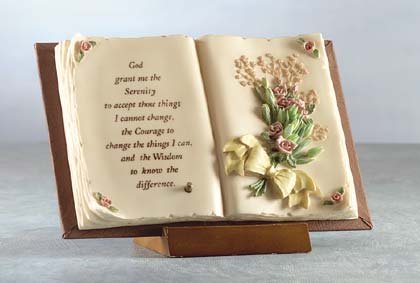 God
grant me the
Serenity
to accept those things
I cannot change,
the Courage to
change the things I can,
and the Wisdom
to know the
difference.